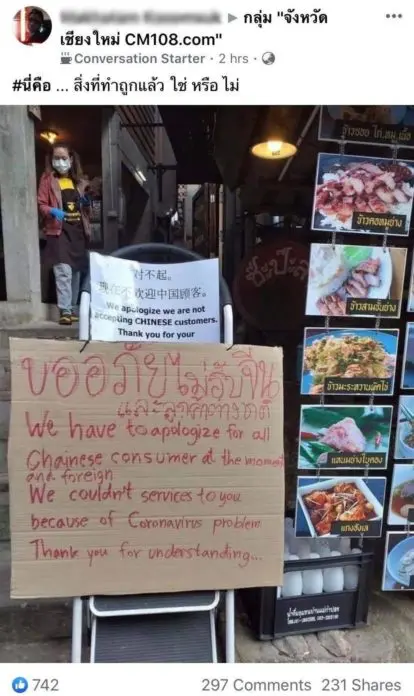 ▶ กลุ่ม "จังหวัด
เชียงใหม่ CM108.com"
Conversation Starter · 2 hrs ·
#นี่คือ ... สิ่งที่ทำถูกแล้ว ใช่ หรือ ไม่
对不起。
现在不欢迎中国顾客。
We apologize we are not
accepting CHINESE customers.
Thank you for your
ขออภัยไม่รับจีน
และลูกค้าต่างชาติ
We have to apologize for all
Chainese consumer at the moment
and foreign
We couldn't services to you
because of Coronavirus problem
Thank you for understanding...
ข้าวคอหมูย่าง
ข้าวสามชั้นย่าง
ข้าวมะระหวานผัดไข่
แหนมย่างใบตอง
แกงฮังเล
742
297 Comments 231 Shares